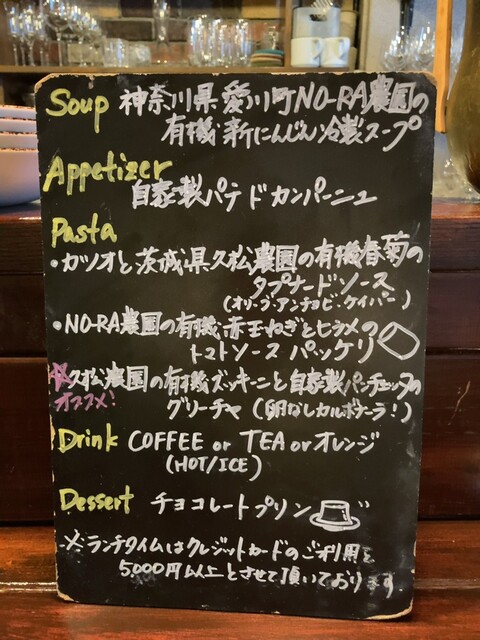 Soup 神奈川県愛川町NO-RA農園の
有機新にんじん冷製スープ
Appetizer
自家製パテドカンパーニュ
Pasta
・カツオと茨城県久松農園の有機春菊の
タプナードソース
(オリーブ・アンチョビ・ケイパー)
・NO-RA農園の有機赤玉ねぎとヒラメの
トマトソース パッケリ
☆久松農園の有機ズッキーニと自家製パンチェッタの
オススメ! グリーチャ (卵なしカルボナーラ!)
Drink COFFEE or TEA or オレンジ
(HOT/ICE)
Dessert チョコレートプリン
※ランチタイムはクレジットカードのご利用を
5,000円以上とさせて頂いております